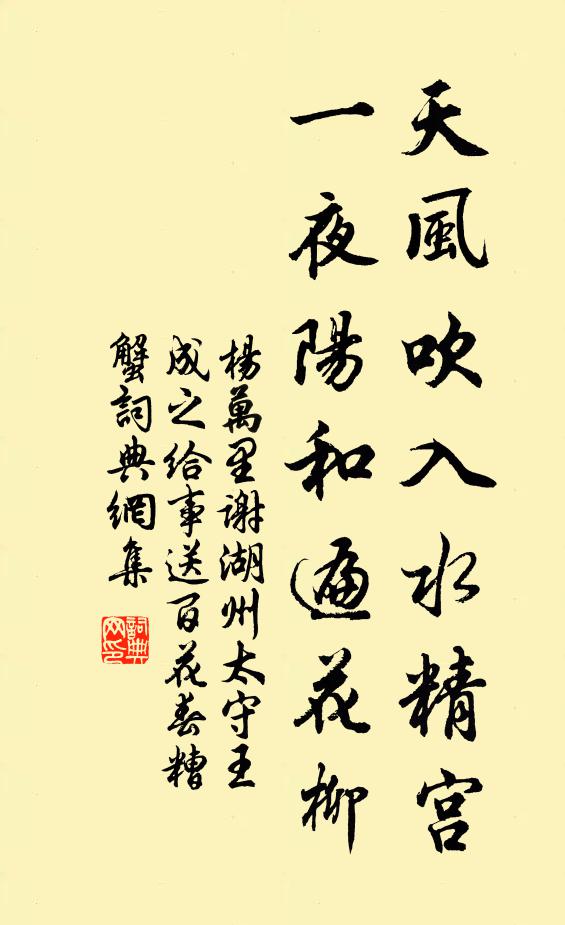 天風吹入水精宮
一夜陽和遍花柳
楊萬里謝湖州太守王
成之給事送百花春糟
蟹詞典網集
詞典
网印